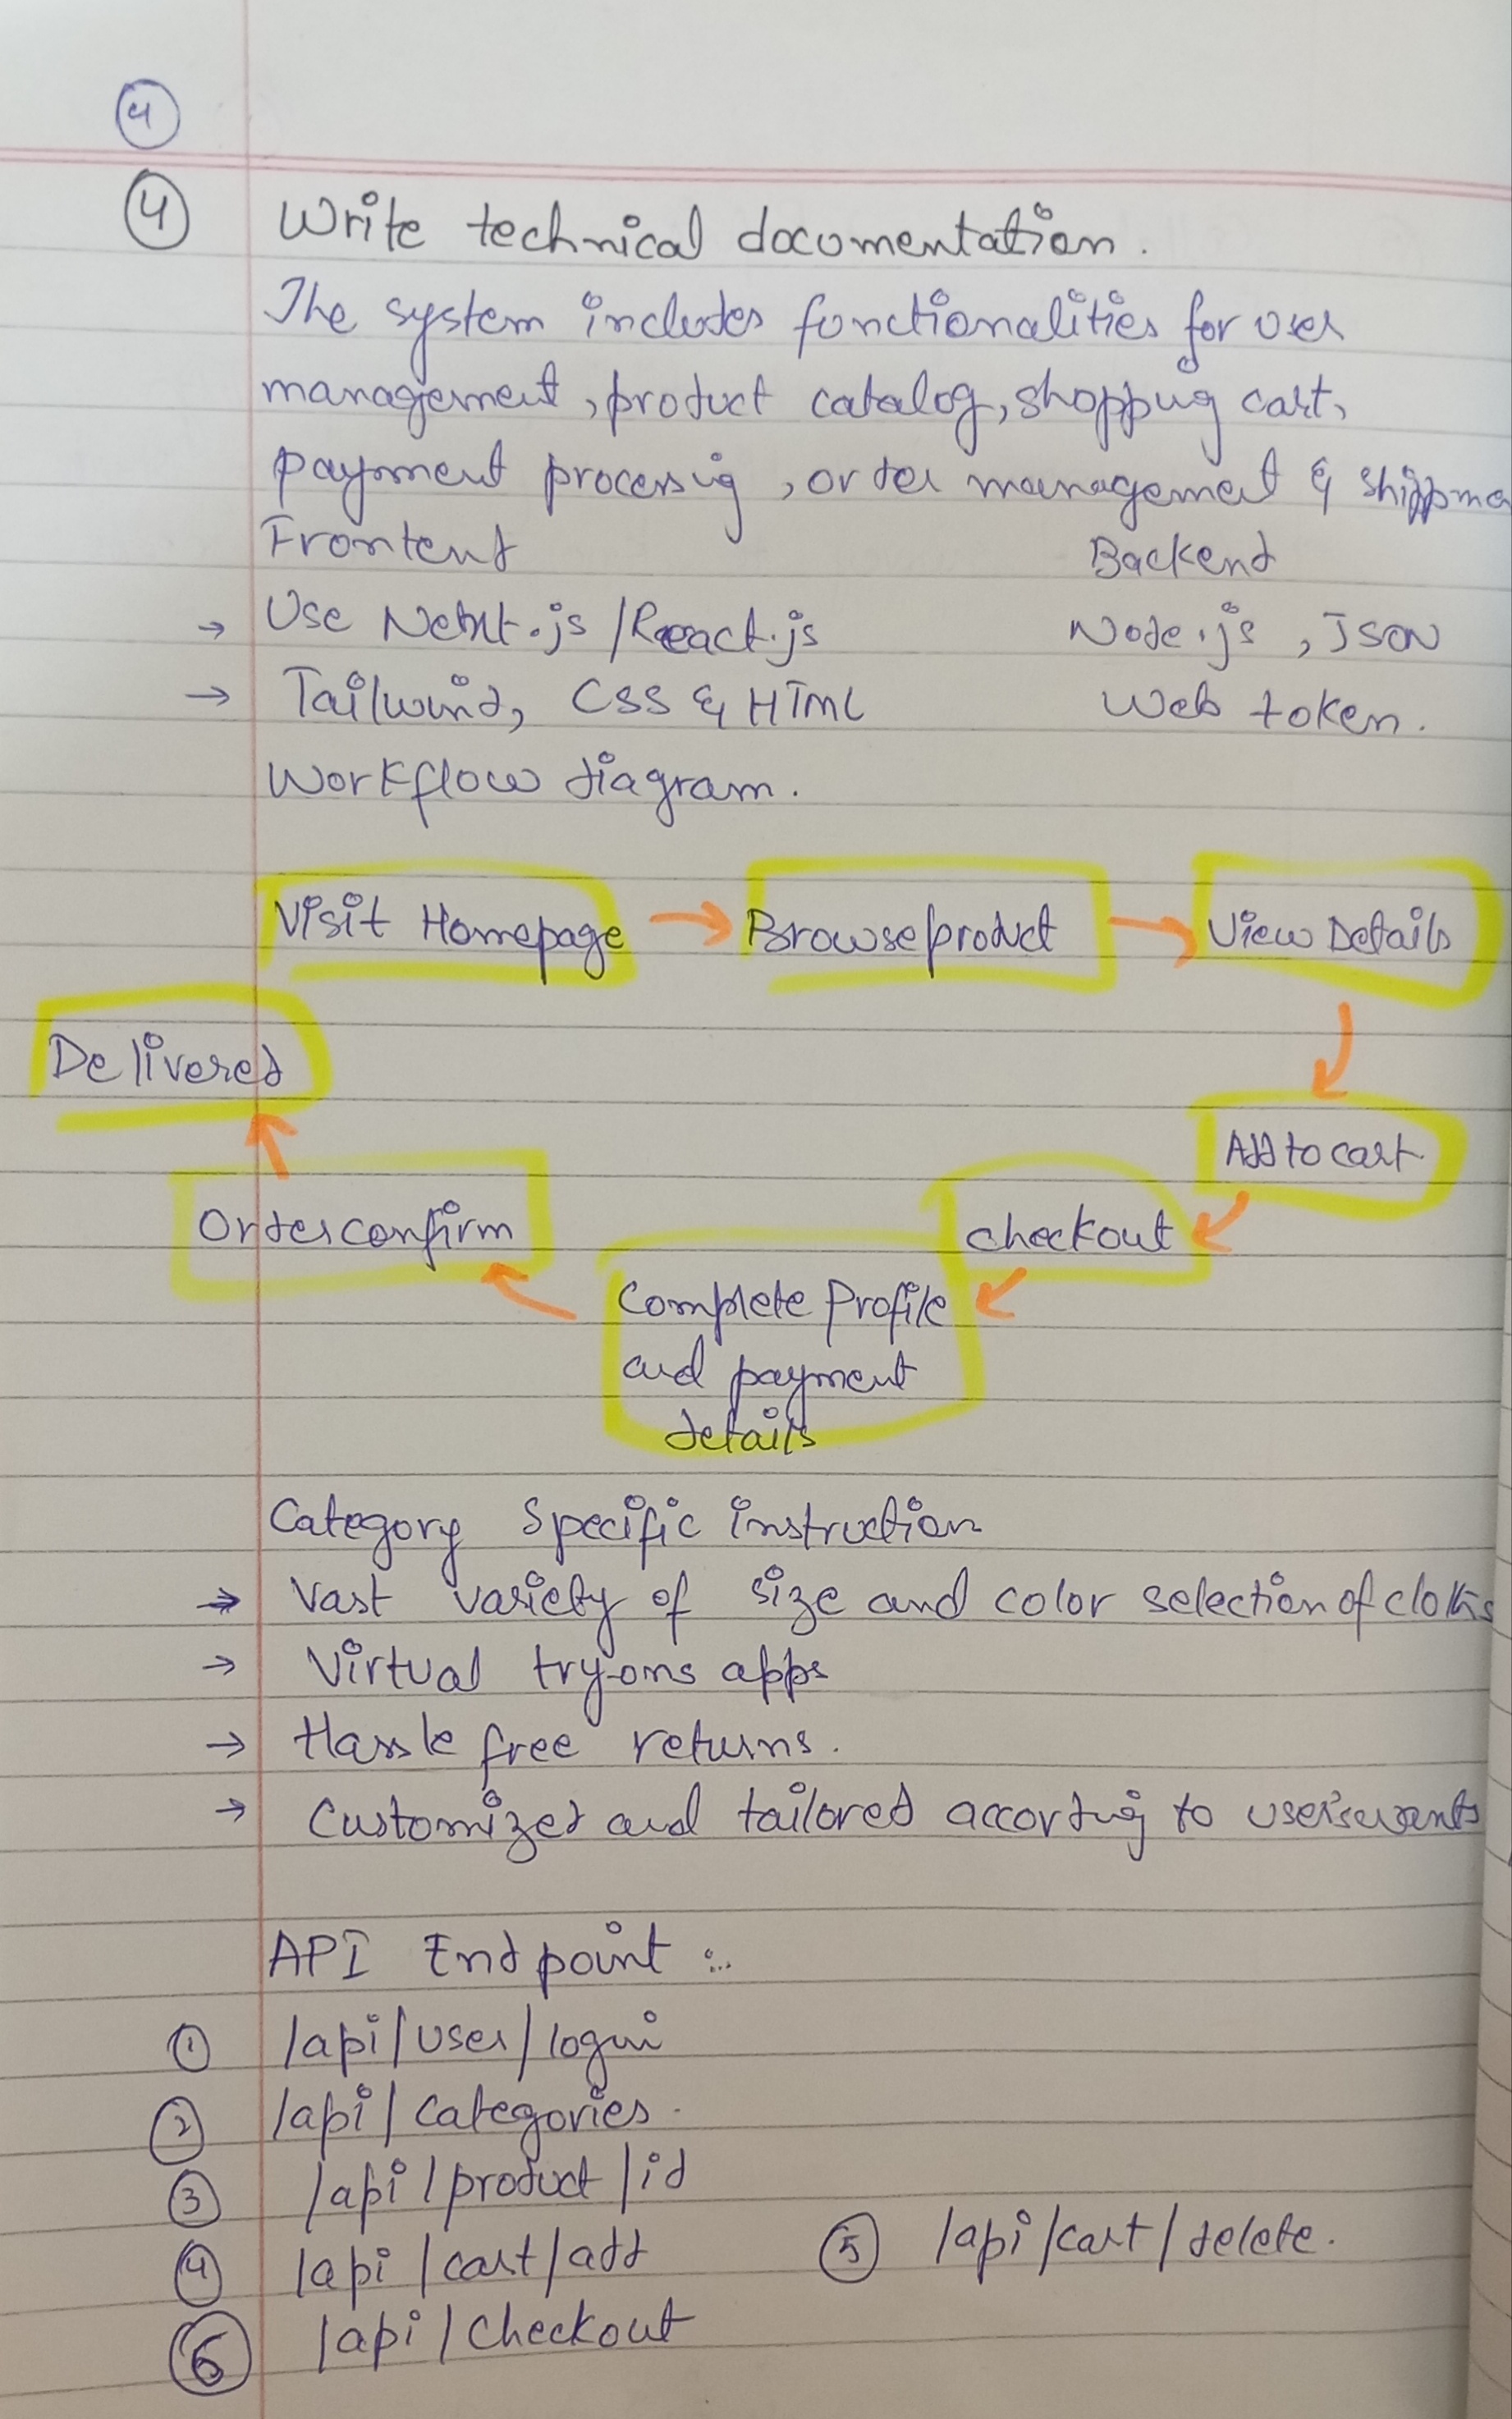 4
4 Write technical documentation.
The system includes functionalities for user
management, product catalog, shopping cart,
payment processing, order management & shipme
Frontend Backend
→ Use Next.js /React.js Node.js, JSON
→ Tailwind, CSS & HTML Web token.
Workflow diagram.
Visit Homepage → Browse product → View Details
Delivered
Add to cart
Order confirm checkout
Complete Profile
and payment
details
Category Specific instruction
→ Vast variety of size and color selection of cloths
→ Virtual try-ons apps
→ Hassle free returns.
→ Customized and tailored according to user's wants
API End point :..
1 /api/user/login
2 /api/categories.
3 /api/product/id
4 /api/cart/add 5 /api/cart/delete.
6 /api/checkout